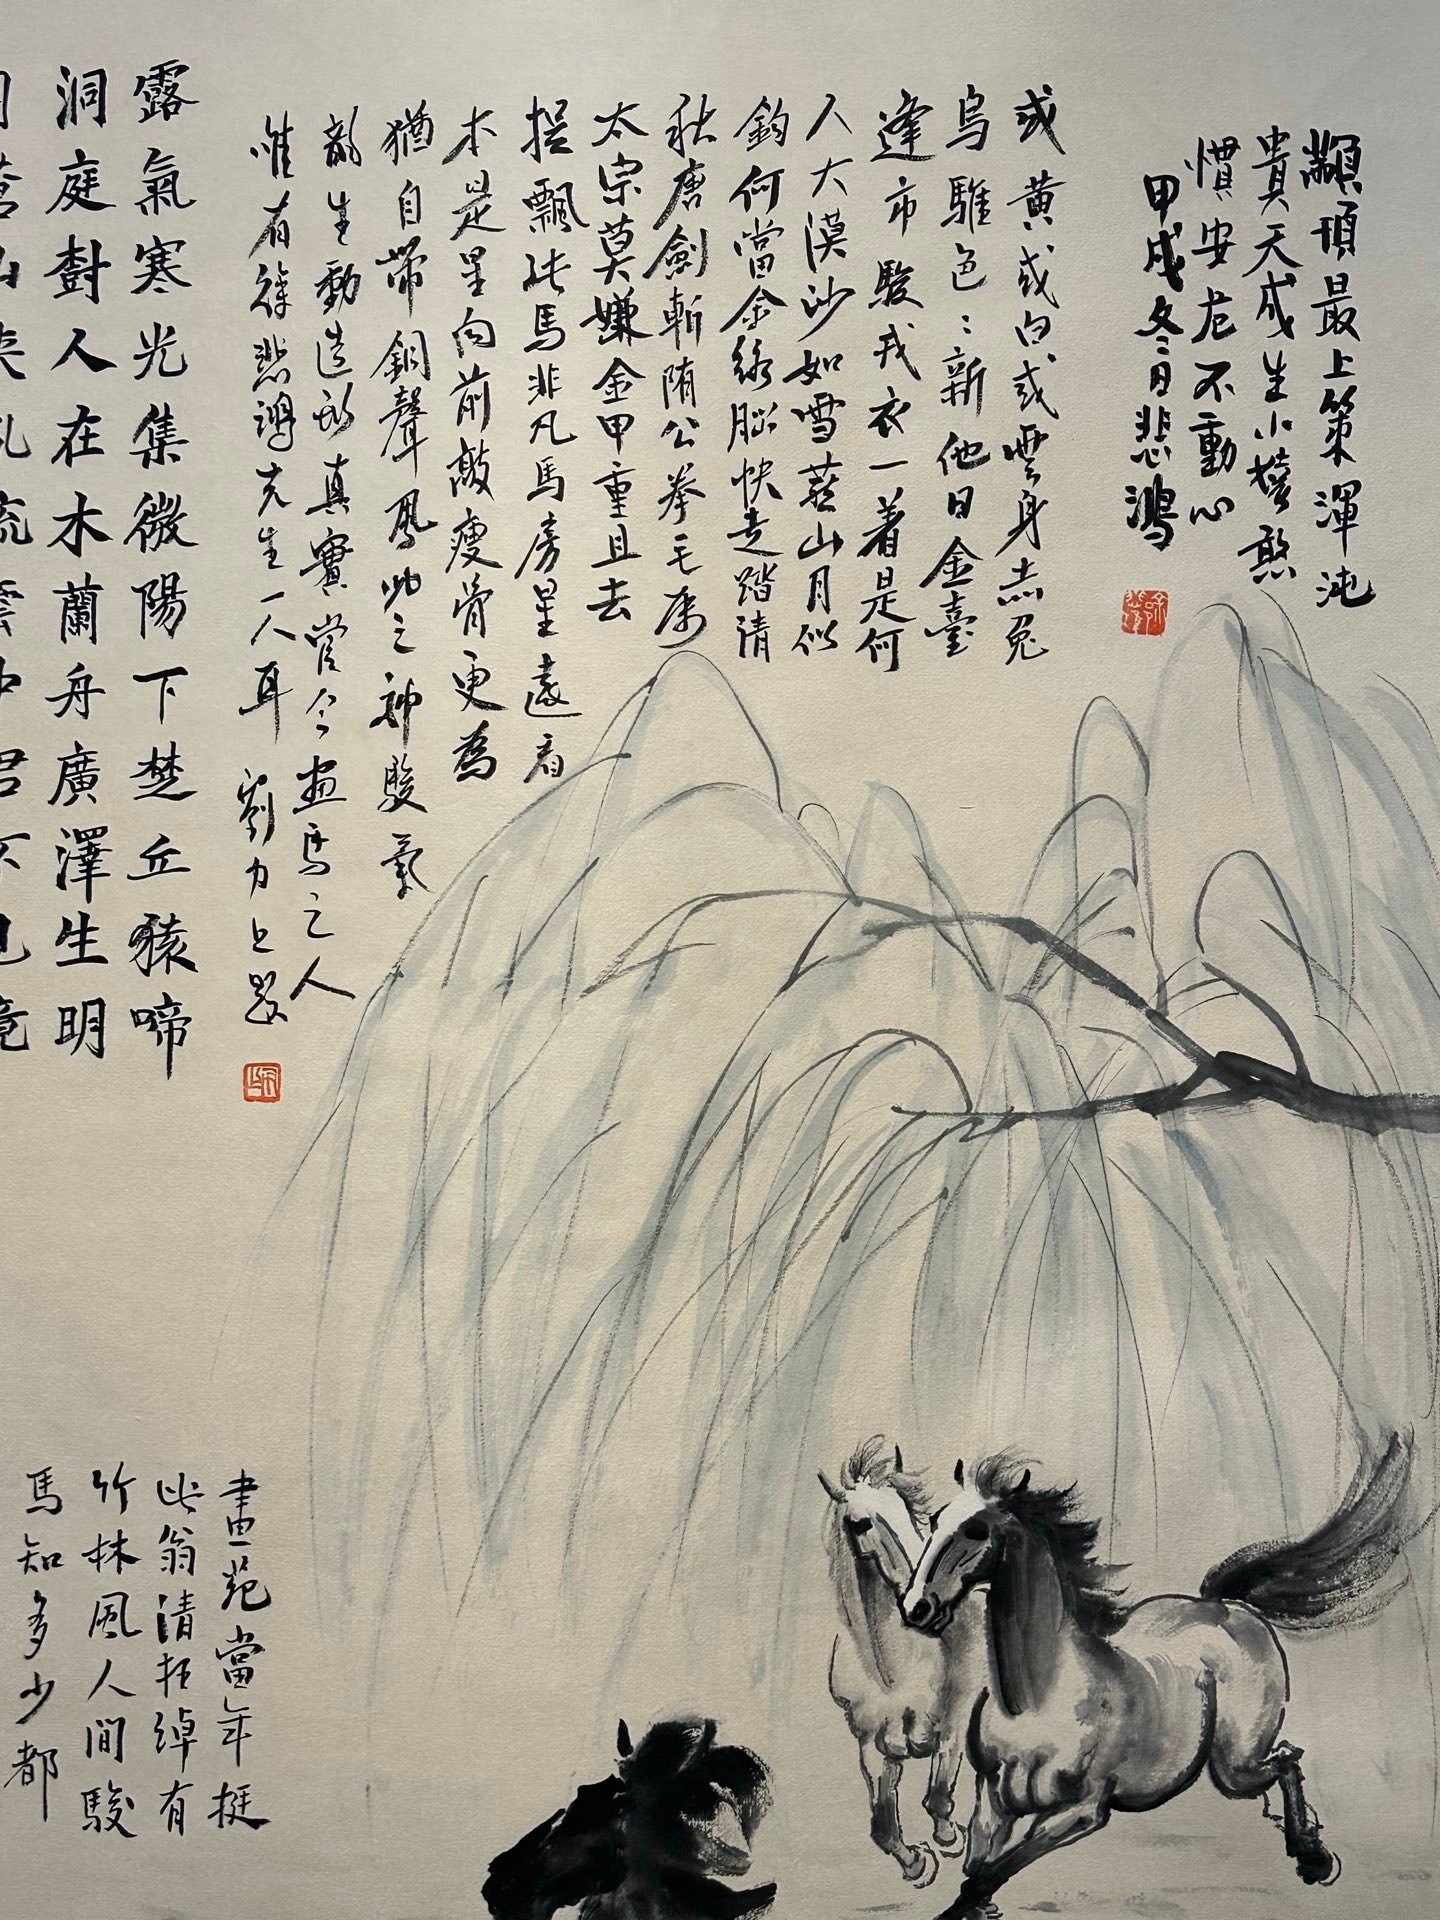 顢頇最上策渾沌
貴天成生小憨
慣安危不動心
甲戌冬日悲鴻
或黄或白或雲身赤兔
烏騅色〻新他日金臺
逢市駿戎衣一着是何
人大漠沙如雪燕山月似
鈎何當金絡腦快走踏清
秋唐劍斬隋公拳毛属
太宗莫嫌金甲重且去
捉飄䬟馬非凡馬房星遠看
本是星向前敲瘦骨更為
猶自帶銅聲鳳㘭之神駿氣
韻生動造形真實當今画馬之人
唯有徐悲鴻先生一人耳 劉力上題
露氣寒光集微陽下楚丘猿啼
洞庭樹人在木蘭舟廣澤生明
月蒼山夾亂流雲中君不見竟
畫苑當年挺
此翁清狂綽有
竹林風人間駿
馬知多少都